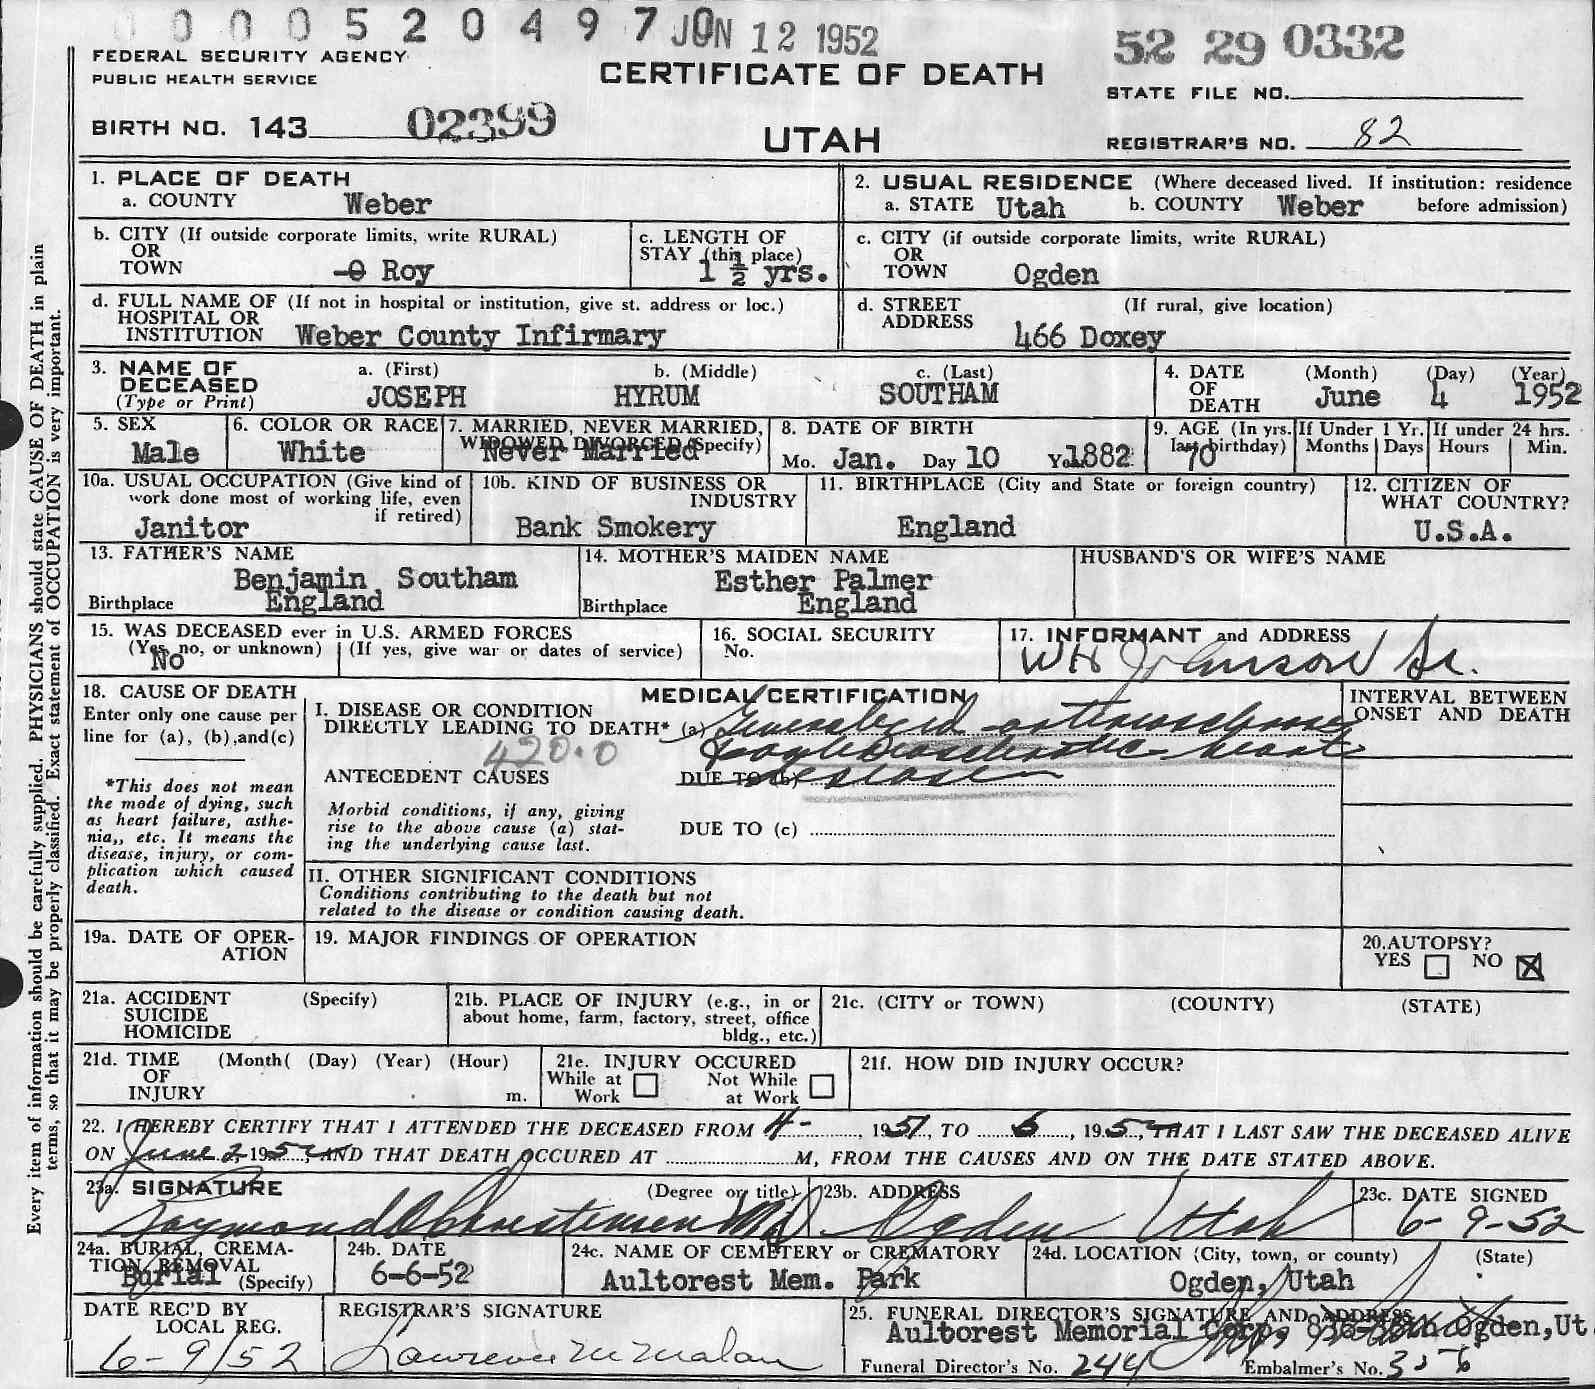 0 0 0 5 2 0 4 9 7 JUN 12 1952
52 29 0332
FEDERAL SECURITY AGENCY
PUBLIC HEALTH SERVICE
CERTIFICATE OF DEATH
STATE FILE NO.
BIRTH NO. 143 02399
UTAH
REGISTRAR'S NO. 82
1. PLACE OF DEATH
a. COUNTY Weber
2. USUAL RESIDENCE (Where deceased lived. If institution: residence before admission)
a. STATE Utah b. COUNTY Weber
b. CITY (If outside corporate limits, write RURAL)
OR
TOWN Roy
c. LENGTH OF
STAY (this place)
1 1/2 yrs.
c. CITY (if outside corporate limits, write RURAL)
OR
TOWN Ogden
d. FULL NAME OF (If not in hospital or institution, give st. address or loc.)
HOSPITAL OR
INSTITUTION Weber County Infirmary
d. STREET (If rural, give location)
ADDRESS 466 Doxey
3. NAME OF
DECEASED
(Type or Print)
a. (First) b. (Middle) c. (Last)
JOSEPH HYRUM SOUTHAM
4. DATE OF DEATH (Month) (Day) (Year)
June 4 1952
5. SEX
Male
6. COLOR OR RACE
White
7. MARRIED, NEVER MARRIED,
WIDOWED, DIVORCED (Specify)
Never Married
8. DATE OF BIRTH
Mo. Jan. Day 10 Yr. 1882
9. AGE (In yrs. last birthday)
70
If Under 1 Yr.
Months Days
If under 24 hrs.
Hours Min.
10a. USUAL OCCUPATION (Give kind of
work done most of working life, even
if retired)
Janitor
10b. KIND OF BUSINESS OR
INDUSTRY
Bank Smokery
11. BIRTHPLACE (City and State or foreign country)
England
12. CITIZEN OF
WHAT COUNTRY?
U.S.A.
13. FATHER'S NAME
Benjamin Southam
Birthplace England
14. MOTHER'S MAIDEN NAME
Esther Palmer
Birthplace England
HUSBAND'S OR WIFE'S NAME
15. WAS DECEASED ever in U.S. ARMED FORCES
(Yes, no, or unknown) (If yes, give war or dates of service)
No
16. SOCIAL SECURITY
No.
17. INFORMANT and ADDRESS
WH Johnson Sr.
18. CAUSE OF DEATH
Enter only one cause per
line for (a), (b), and (c)
*This does not mean
the mode of dying, such
as heart failure, asthe-
nia,, etc. It means the
disease, injury, or com-
plication which caused
death.
MEDICAL CERTIFICATION
I. DISEASE OR CONDITION
DIRECTLY LEADING TO DEATH* (a) Generalized arteriosclerosis
420.0
heart
ANTECEDENT CAUSES DUE TO (b) disease
Morbid conditions, if any, giving
rise to the above cause (a) stat-
ing the underlying cause last.
DUE TO (c)
INTERVAL BETWEEN
ONSET AND DEATH
II. OTHER SIGNIFICANT CONDITIONS
Conditions contributing to the death but not
related to the disease or condition causing death.
19a. DATE OF OPER-
ATION
19. MAJOR FINDINGS OF OPERATION
20. AUTOPSY?
YES NO X
21a. ACCIDENT (Specify)
SUICIDE
HOMICIDE
21b. PLACE OF INJURY (e.g., in or
about home, farm, factory, street, office
bldg., etc.)
21c. (CITY or TOWN) (COUNTY) (STATE)
21d. TIME (Month( (Day) (Year) (Hour)
OF
INJURY m.
21e. INJURY OCCURED
While at Work Not While at Work
21f. HOW DID INJURY OCCUR?
22. I HEREBY CERTIFY THAT I ATTENDED THE DECEASED FROM 4- 1951, TO 6, 1952, THAT I LAST SAW THE DECEASED ALIVE
ON June 2, 1952, AND THAT DEATH OCCURED AT M, FROM THE CAUSES AND ON THE DATE STATED ABOVE.
23a. SIGNATURE (Degree or title)
Raymond Christensen MD.
23b. ADDRESS
Ogden Utah
23c. DATE SIGNED
6-9-52
24a. BURIAL, CREMA-
TION, REMOVAL
(Specify)
Burial
24b. DATE
6-6-52
24c. NAME OF CEMETERY or CREMATORY
Aultorest Mem. Park
24d. LOCATION (City, town, or county) (State)
Ogden, Utah
DATE REC'D BY
LOCAL REG.
6-9/52
REGISTRAR'S SIGNATURE
Lawrence M Malan
25. FUNERAL DIRECTOR'S SIGNATURE AND ADDRESS
Aultorest Memorial Corp. Ogden, Ut.
Funeral Director's No. 244 Embalmer's No.
Every item of information should be carefully supplied. PHYSICIANS should state CAUSE OF DEATH in plain
terms, so that it may be properly classified. Exact statement of OCCUPATION is very important.